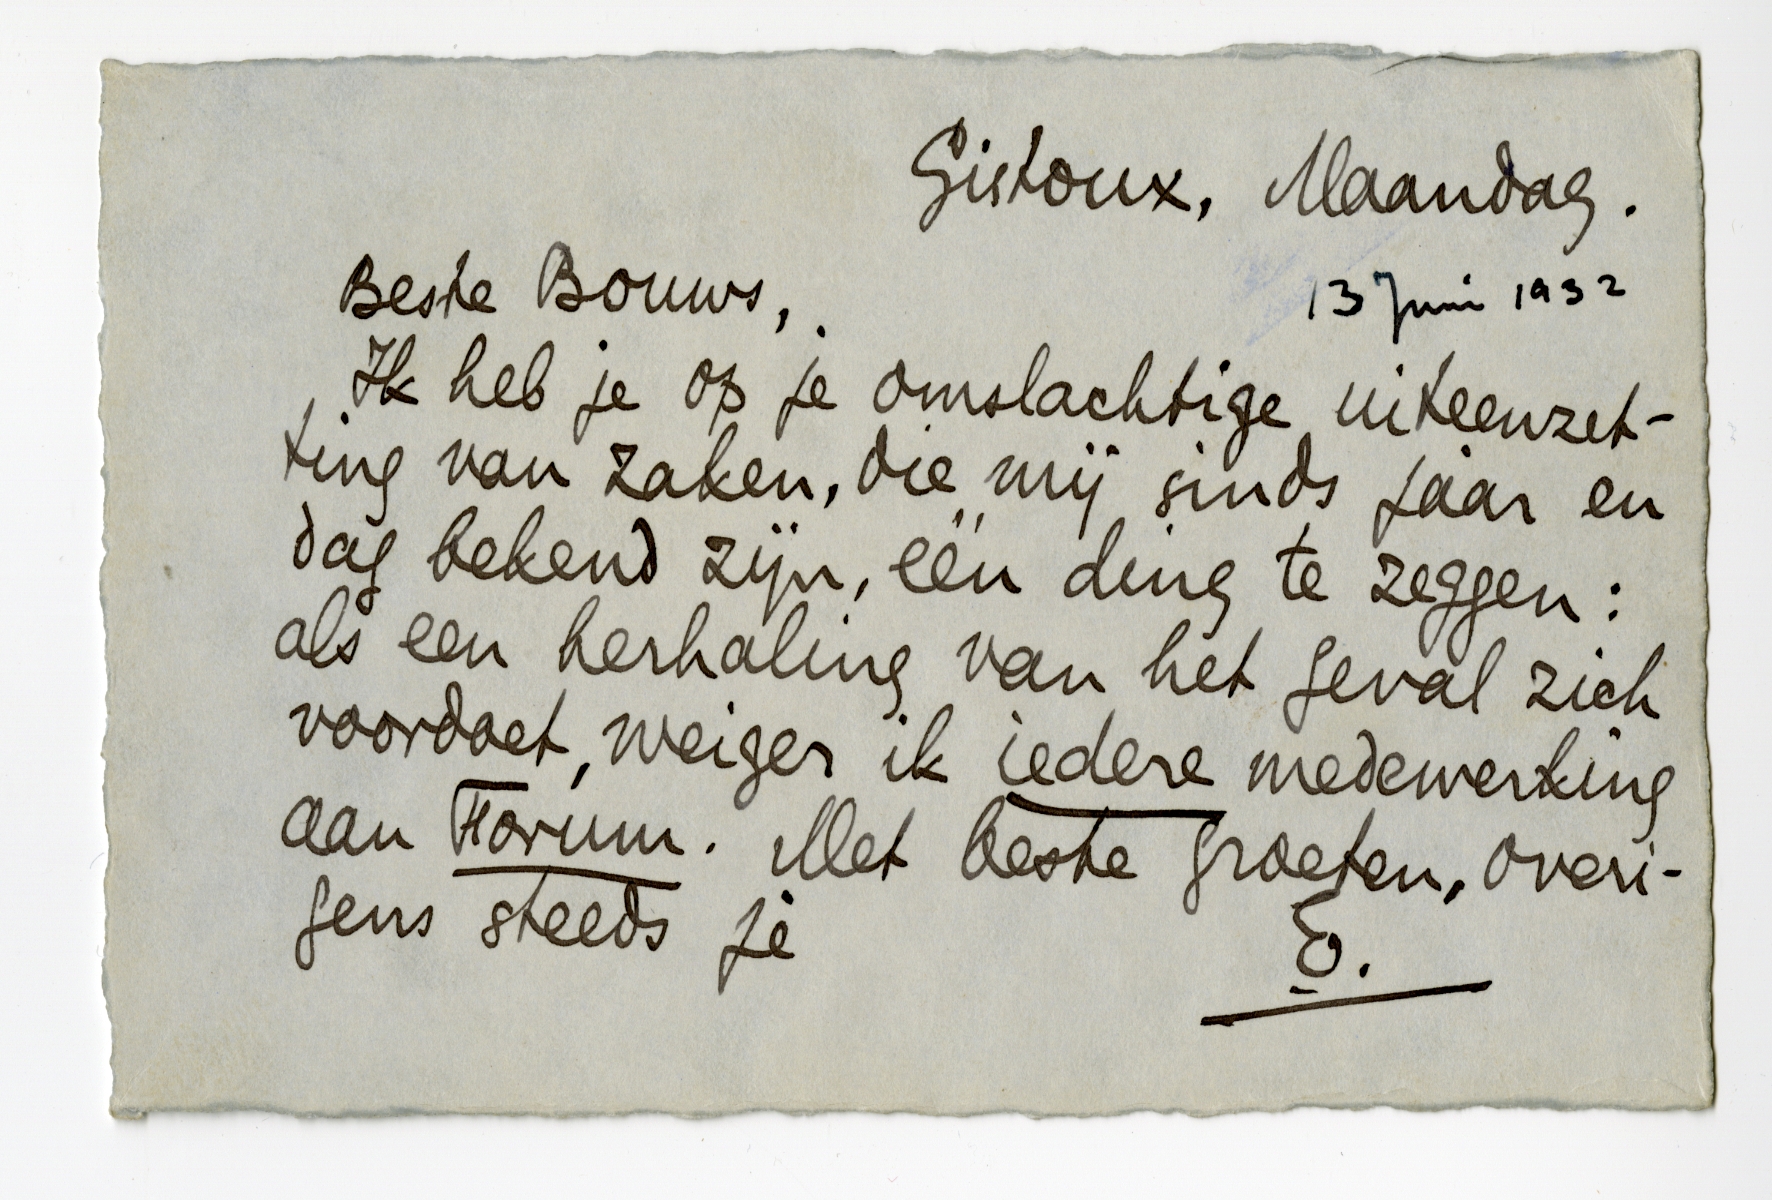 Gistoux, Maandag.
13 Juni 1932
Beste Bouws,
Ik heb je op je omslachtige uiteenzet-
ting van zaken, die mij sinds jaar en
dag bekend zijn, één ding te zeggen:
als een herhaling van het geval zich
voordoet, weiger ik iedere medewerking
aan Forum. Met beste groeten, overi-
gens steeds je
E.